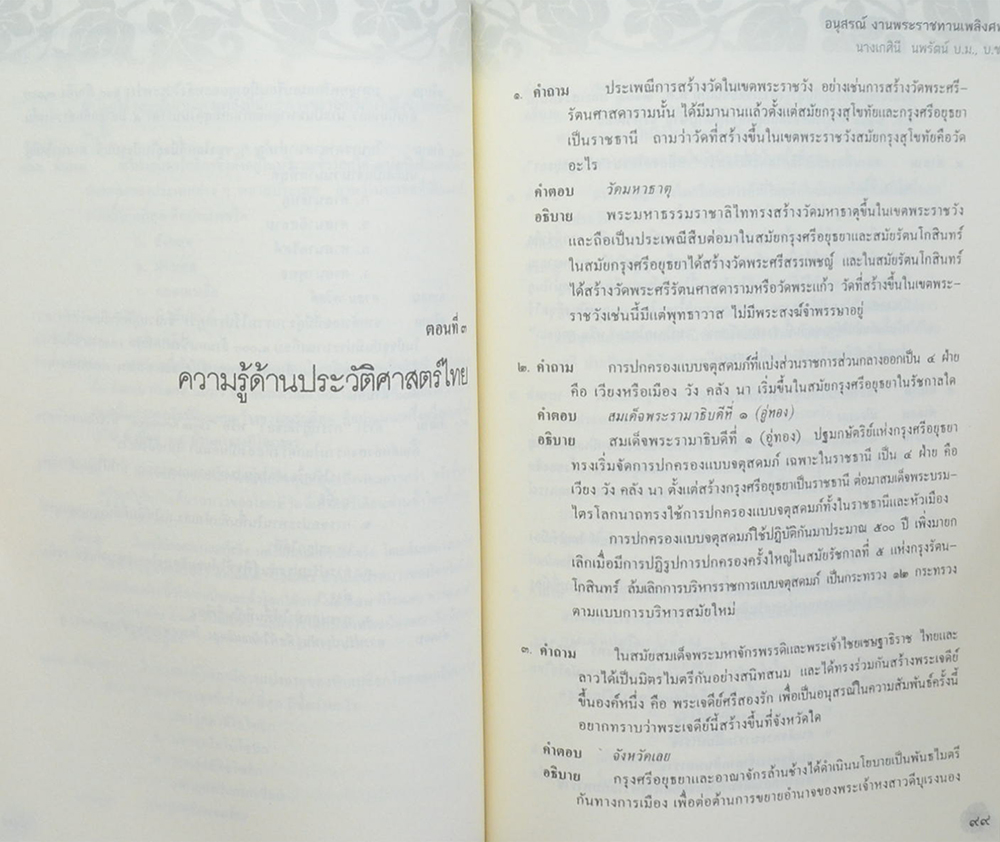 ตอนที่ ๓
ความรู้ด้านประวัติศาสตร์ไทย
อนุสรณ์ งานพระราชทานเพลิงศพ
นางเกสินี นพรัตน์ บ.ม., บ.ช
๑. คำถาม ประเพณีการสร้างวัดในเขตพระราชวัง อย่างเช่นการสร้างวัดพระศรี-
รัตนศาสดารามนั้น ได้มีมานานแล้วตั้งแต่สมัยกรุงสุโขทัยและกรุงศรีอยุธยา
เป็นราชธานี ถามว่าวัดที่สร้างขึ้นในเขตพระราชวังสมัยกรุงสุโขทัยคือวัด
อะไร
คำตอบ วัดมหาธาตุ
อธิบาย พระมหาธรรมราชาลิไททรงสร้างวัดมหาธาตุขึ้นในเขตพระราชวัง
และถือเป็นประเพณีสืบต่อมาในสมัยกรุงศรีอยุธยาและสมัยรัตนโกสินทร์
ในสมัยกรุงศรีอยุธยาได้สร้างวัดพระศรีสรรเพชญ์ และในสมัยรัตนโกสินทร์
ได้สร้างวัดพระศรีรัตนศาสดารามหรือวัดพระแก้ว วัดที่สร้างขึ้นในเขตพระ-
ราชวังเช่นนี้มีแต่พุทธาวาส ไม่มีพระสงฆ์จำพรรษาอยู่
๒. คำถาม การปกครองแบบจตุสดมภ์ที่แบ่งส่วนราชการส่วนกลางออกเป็น ๔ ฝ่าย
คือ เวียงหรือเมือง วัง คลัง นา เริ่มขึ้นในสมัยกรุงศรีอยุธยาในรัชกาลใด
คำตอบ สมเด็จพระรามาธิบดีที่ ๑ (อู่ทอง)
อธิบาย สมเด็จพระรามาธิบดีที่ ๑ (อู่ทอง) ปฐมกษัตริย์แห่งกรุงศรีอยุธยา
ทรงเริ่มจัดการปกครองแบบจตุสดมภ์ เฉพาะในราชธานี เป็น ๔ ฝ่าย คือ
เวียง วัง คลัง นา ตั้งแต่สร้างกรุงศรีอยุธยาเป็นราชธานี ต่อมาสมเด็จพระบรม-
ไตรโลกนาถทรงใช้การปกครองแบบจตุสดมภ์ทั้งในราชธานีและหัวเมือง
การปกครองแบบจตุสดมภ์ใช้ปฏิบัติกันมาประมาณ ๕๐๐ ปี เพิ่งมายก
เลิกเมื่อมีการปฏิรูปการปกครองครั้งใหญ่ในสมัยรัชกาลที่ ๕ แห่งกรุงรัตน-
โกสินทร์ ล้มเลิกการบริหารราชการแบบจตุสดมภ์ เป็นกระทรวง ๑๒ กระทรวง
ตามแบบการบริหารสมัยใหม่
๓. คำถาม ในสมัยสมเด็จพระมหาจักรพรรดิและพระเจ้าไชยเชษฐาธิราช ไทยและ
ลาวได้เป็นมิตรไมตรีกันอย่างสนิทสนม และได้ทรงร่วมกันสร้างพระเจดีย์
ขึ้นองค์หนึ่ง คือ พระเจดีย์ศรีสองรัก เพื่อเป็นอนุสรณ์ในความสัมพันธ์ครั้งนี้
อยากทราบว่าพระเจดีย์นี้สร้างขึ้นที่จังหวัดใด
คำตอบ จังหวัดเลย
อธิบาย กรุงศรีอยุธยาและอาณาจักรล้านช้างได้ดำเนินนโยบายเป็นพันธไมตรี
กันทางการเมือง เพื่อต่อต้านการขยายอำนาจของพระเจ้าหงสาวดีบุเรงนอง
๙๙